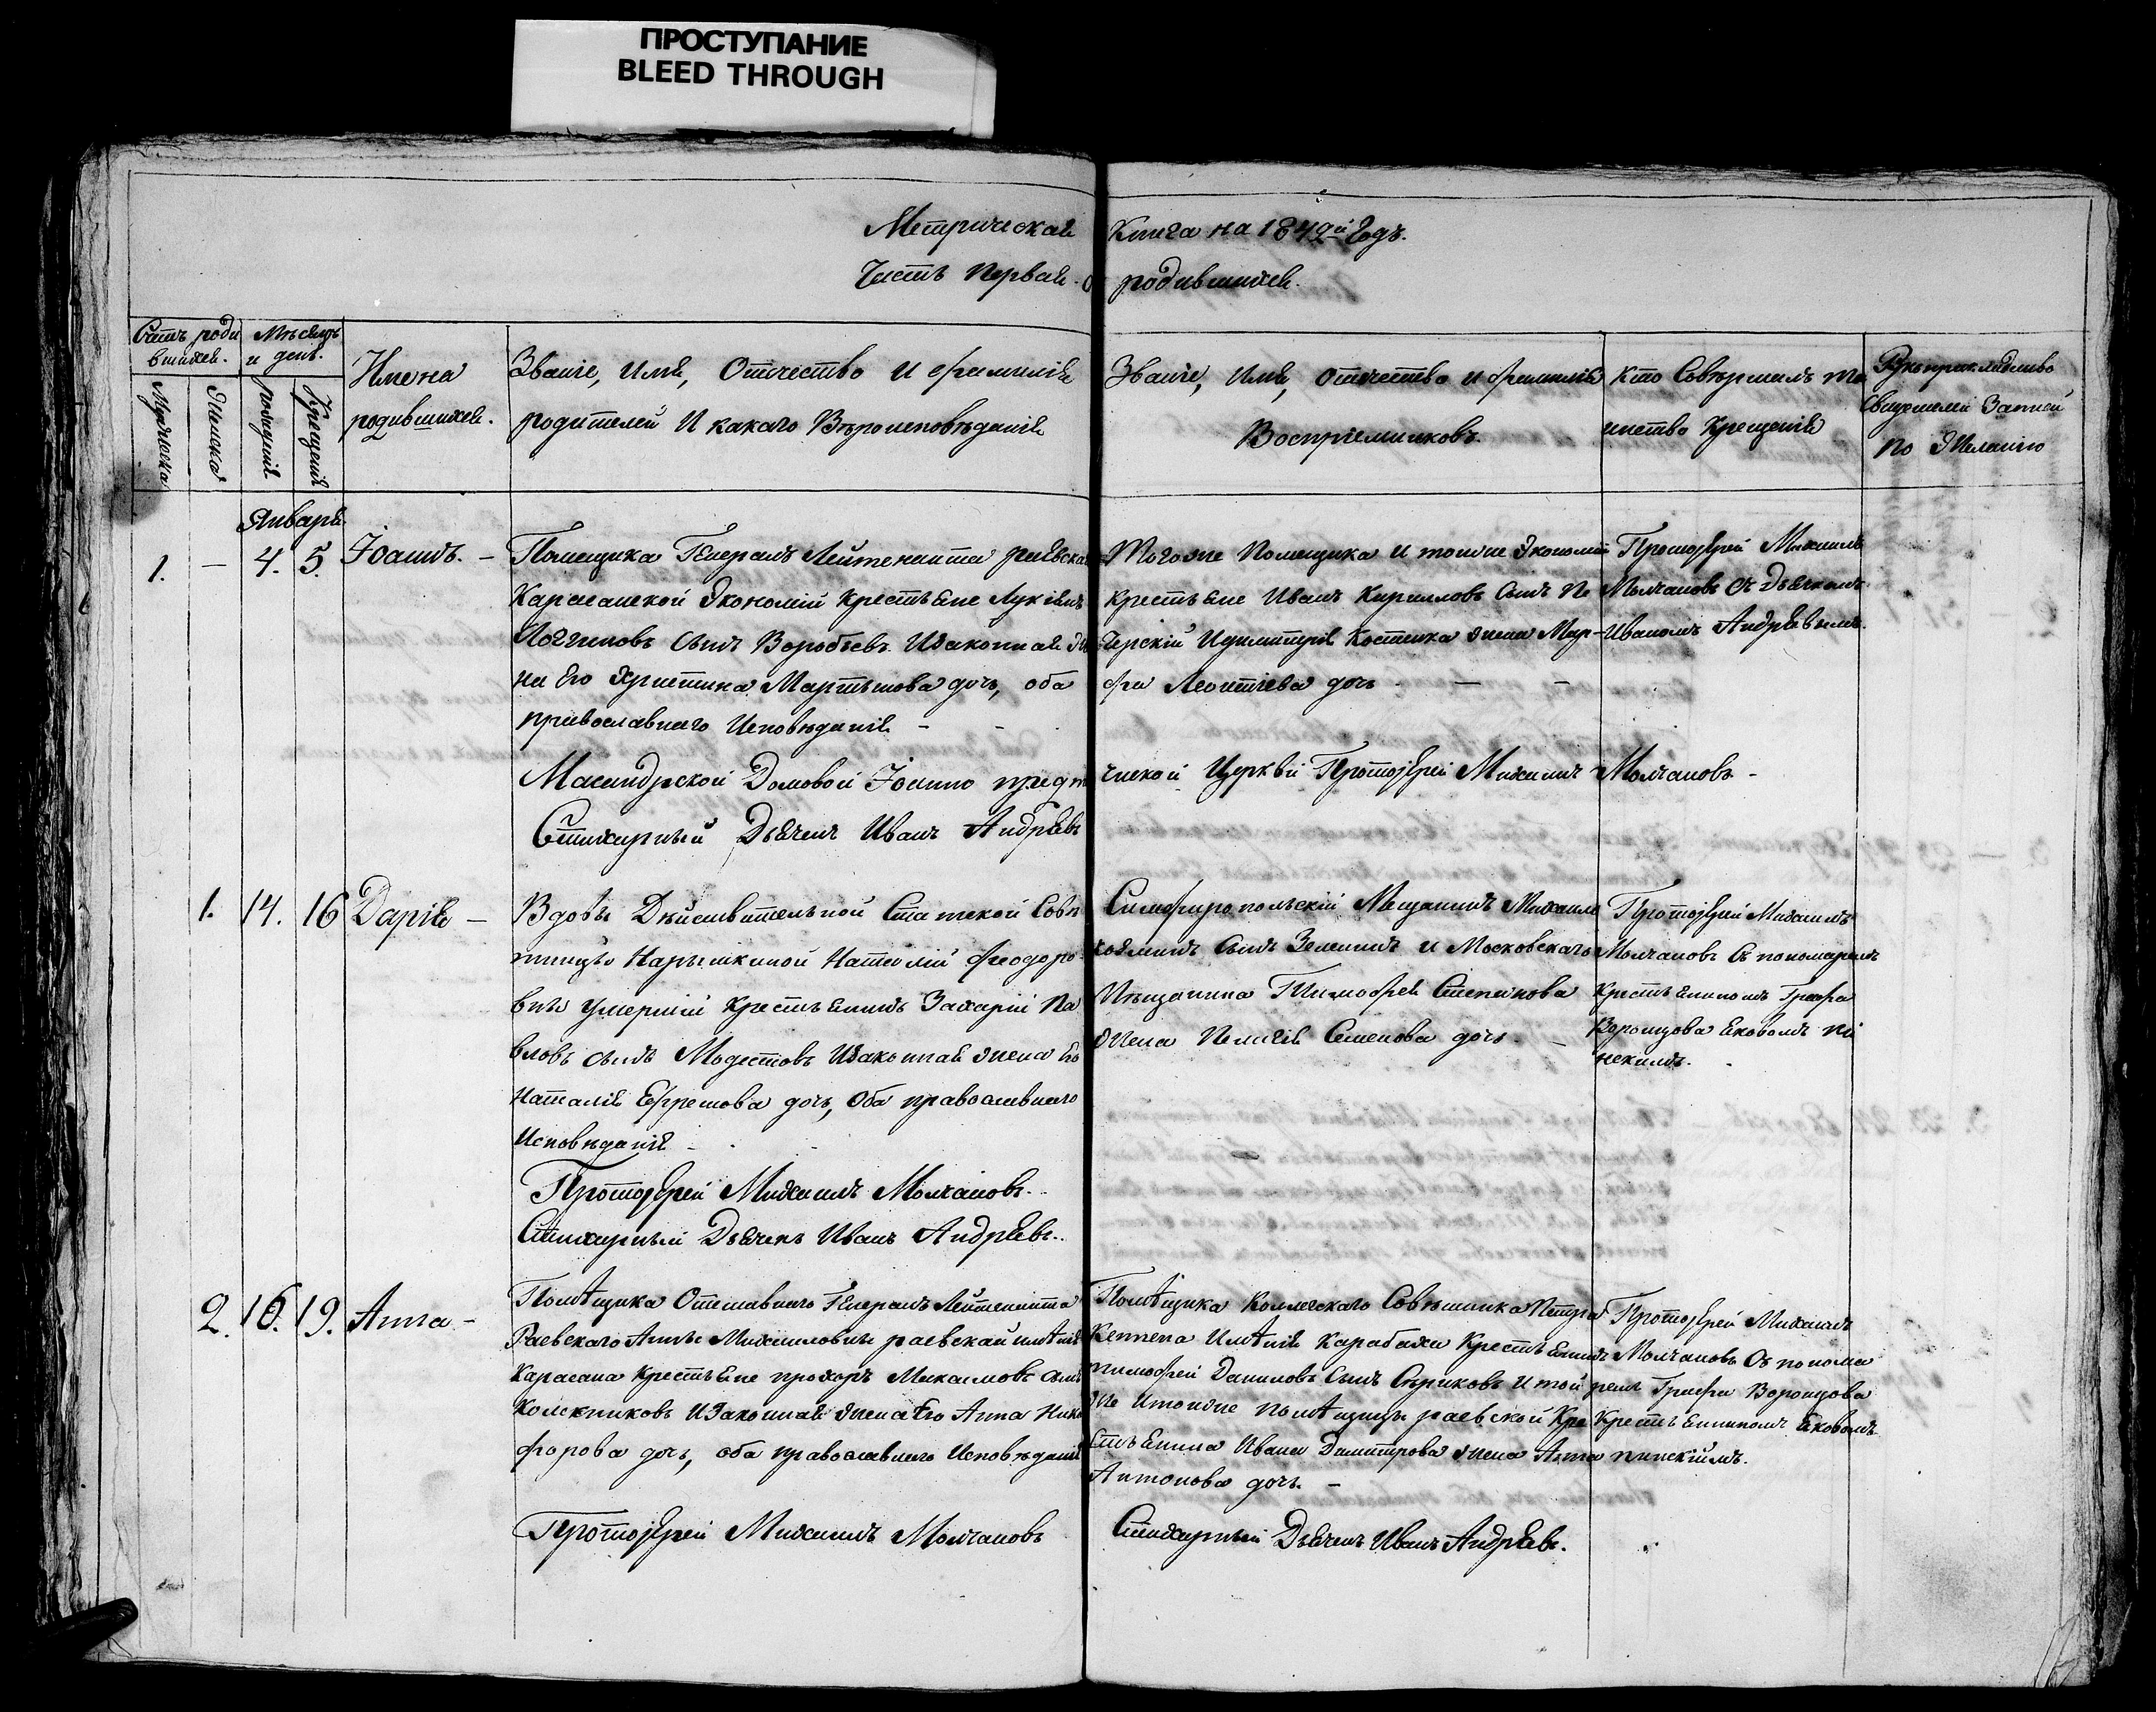 ПРОСТУПАНИЕ
BLEED THROUGH
Метрическая Книга на 1842й Годъ.
Часть первая. О родившихся.
Счетъ роди
вшихся.
Мужеска
Женска
Мѣсяцъ
и день.
рожденія
Крещенія
Имена
родившихся.
Званіе, имя, Отчество и фамилія
родителей И какаго Вѣроисповѣданія
Званіе, Имя, отчество и фамилія
Воспріемниковъ.
Кто Совершалъ та
инство Крещенія
Рукоприкладство
Свидѣтелей Записи
по Желанію
Январь
1. — 4. 5. Іоаннъ. —
Помещика Генералъ Лейтенанта раевска
Карасанской Экономіи крестьяне Лукіянъ
Логгиновъ сынъ Воробьевъ Изаконная же
на Его Христина Мартынова дочь, оба
православнаго Исповѣданія —
Тогоже Помещика и тойже Экономіи
крестьяне Иванъ Кирилловъ Сынъ Пе
черскій Идимитрія Костенка жена Мар-
фа Леонтіева дочь — —
Протоіерей Михаилъ
Молчановъ Съ Дьячкомъ
Иваномъ Андреевымъ.
Масандрской Домовой Іоанно предт
ческой Церкви Протоіерей Михаилъ Молчановъ —
Стихарный Дьячекъ Иванъ Андреевъ
1. 14. 16 Дарія —
Вдовы Дѣйствительной Статской Совѣ
тницы Нарышкиной Наталіи Феодоро
вны умершій крестьянинъ Захарій Па
вловъ сынъ Модестовъ Изаконная жена Его
Наталія Ефремова дочь, Оба православнаго
Исповѣданія —
Симферопольскій Мещанинъ Михаилъ
сынъ и Московскаго
Мѣщанина Тимофея Степанова
жена Пелагія Семенова дочь. —
Протоіерей Михаилъ
Молчановъ Съ пономаремъ
Крестьяниномъ Графа
Воронцова Яковомъ пи
нскимъ.
Протоіерей Михаилъ Молчановъ.
Стихарный Дьячекъ Иванъ Андреевъ.
2. 16. 19. Анна —
Помѣщика Отставнаго Генералъ Лейтенанта
Раевскаго Анны Михаиловны раевской имѣнія
Карасана Крестьяне прохоръ Максимовъ сынъ
Колесниковъ ИЗаконная жена Его Анна Ники
форова дочь, оба православнаго Исповѣданія
Помѣщика Коллежскаго Совѣтника Петра
Кеппена Имѣнія Карабаха Крестьянинъ
тимофей Даниловъ Сынъ Сѣриковъ И той
же Имѣніе помѣщицы раевской Кре
стьянина Ивана Димитрова жена Анна
Антонова дочь. —
Протоіерей Михаилъ
Молчановъ Съ понома
ремъ Графа Воронцова
Крестьяниномъ Яковомъ
пинскимъ.
Протоіерей Михаилъ Молчановъ
Стихарный Дьячекъ Иванъ Андреевъ.